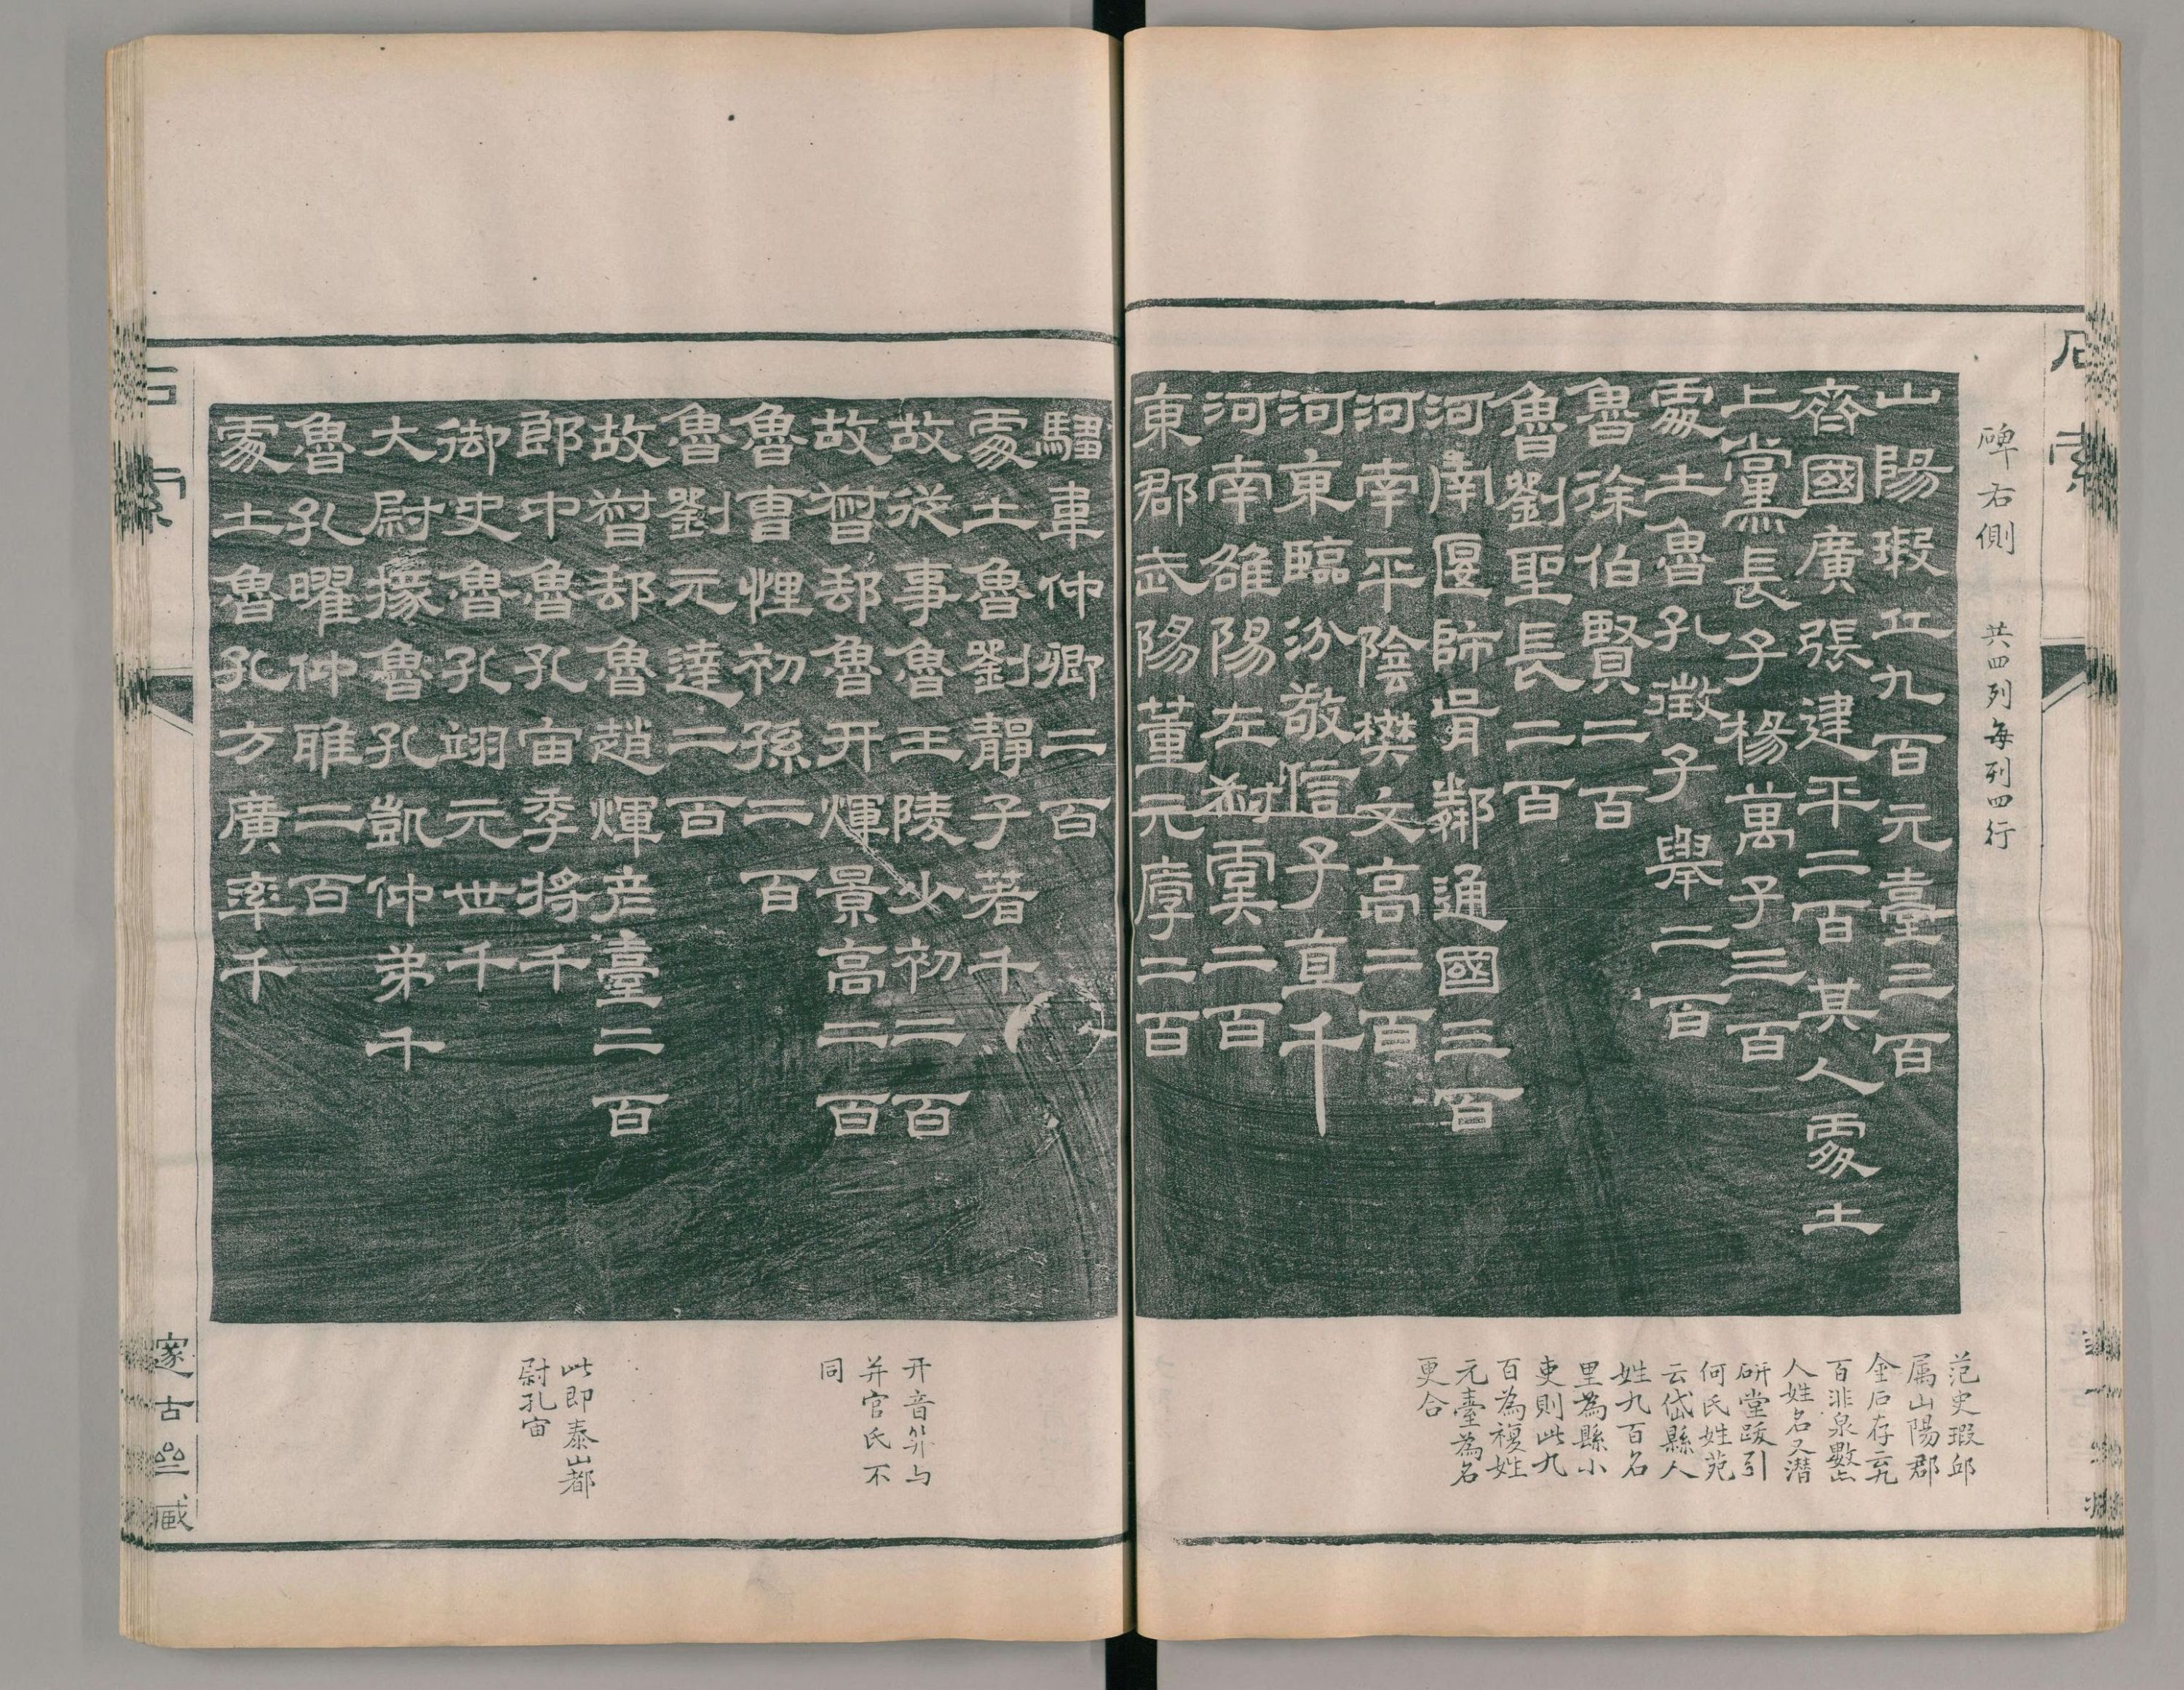 石索
碑右側 共四列每列四行
山陽瑕丘九百元臺三百
齊國廣張建平二百其人處士
上黨長子楊萬子三百
處士魯孔徵子舉二百
魯徐伯賢二百
魯劉聖長二百
河南匽師胥鄰通國三百
河南平陰樊文高二百
河東臨汾敬信子直千
河南雒陽左叔虞二百
東郡武陽董元厚二百
范史瑕邱
属山陽郡
金石存云九
百非泉數上
人姓名又潛
研堂跋引
何氏姓苑
云岱縣人
姓九百名
里為縣小
吏則此九
百為複姓
元臺為名
更合
騶韋仲卿二百
處士魯劉靜子著千
故從事魯王陵少初二百
故督郵魯开煇景高二百
魯曹悝初孫二百
魯劉元達二百
故督郵魯趙煇彦臺二百
郎中魯孔宙季將千
御史魯孔翊元世千
大尉掾魯孔凱仲弟千
魯孔曜仲雅二百
處士魯孔方廣率千
开音筓与
并官氏不
同
此即泰山都
尉孔宙
石索
邃古亝臧